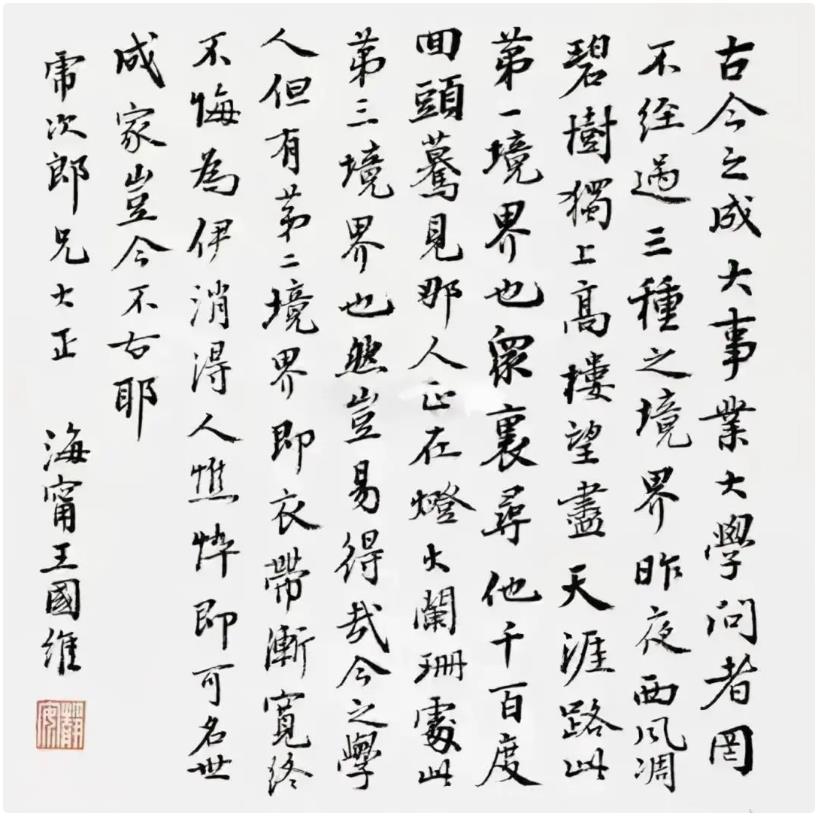 古今之成大事業大學問者罔
不经過三種之境界昨夜西风凋
碧樹獨上高樓望盡天涯路此
第一境界也眾裏尋他千百度
回頭驀見那人正在燈火闌珊處此
第三境界也然豈易得哉今之學
人但有第二境界即衣帶漸寬终
不悔為伊消得人憔悴即可名世
成家豈今不古耶
次郎兄大正 海甯王國維
靜安